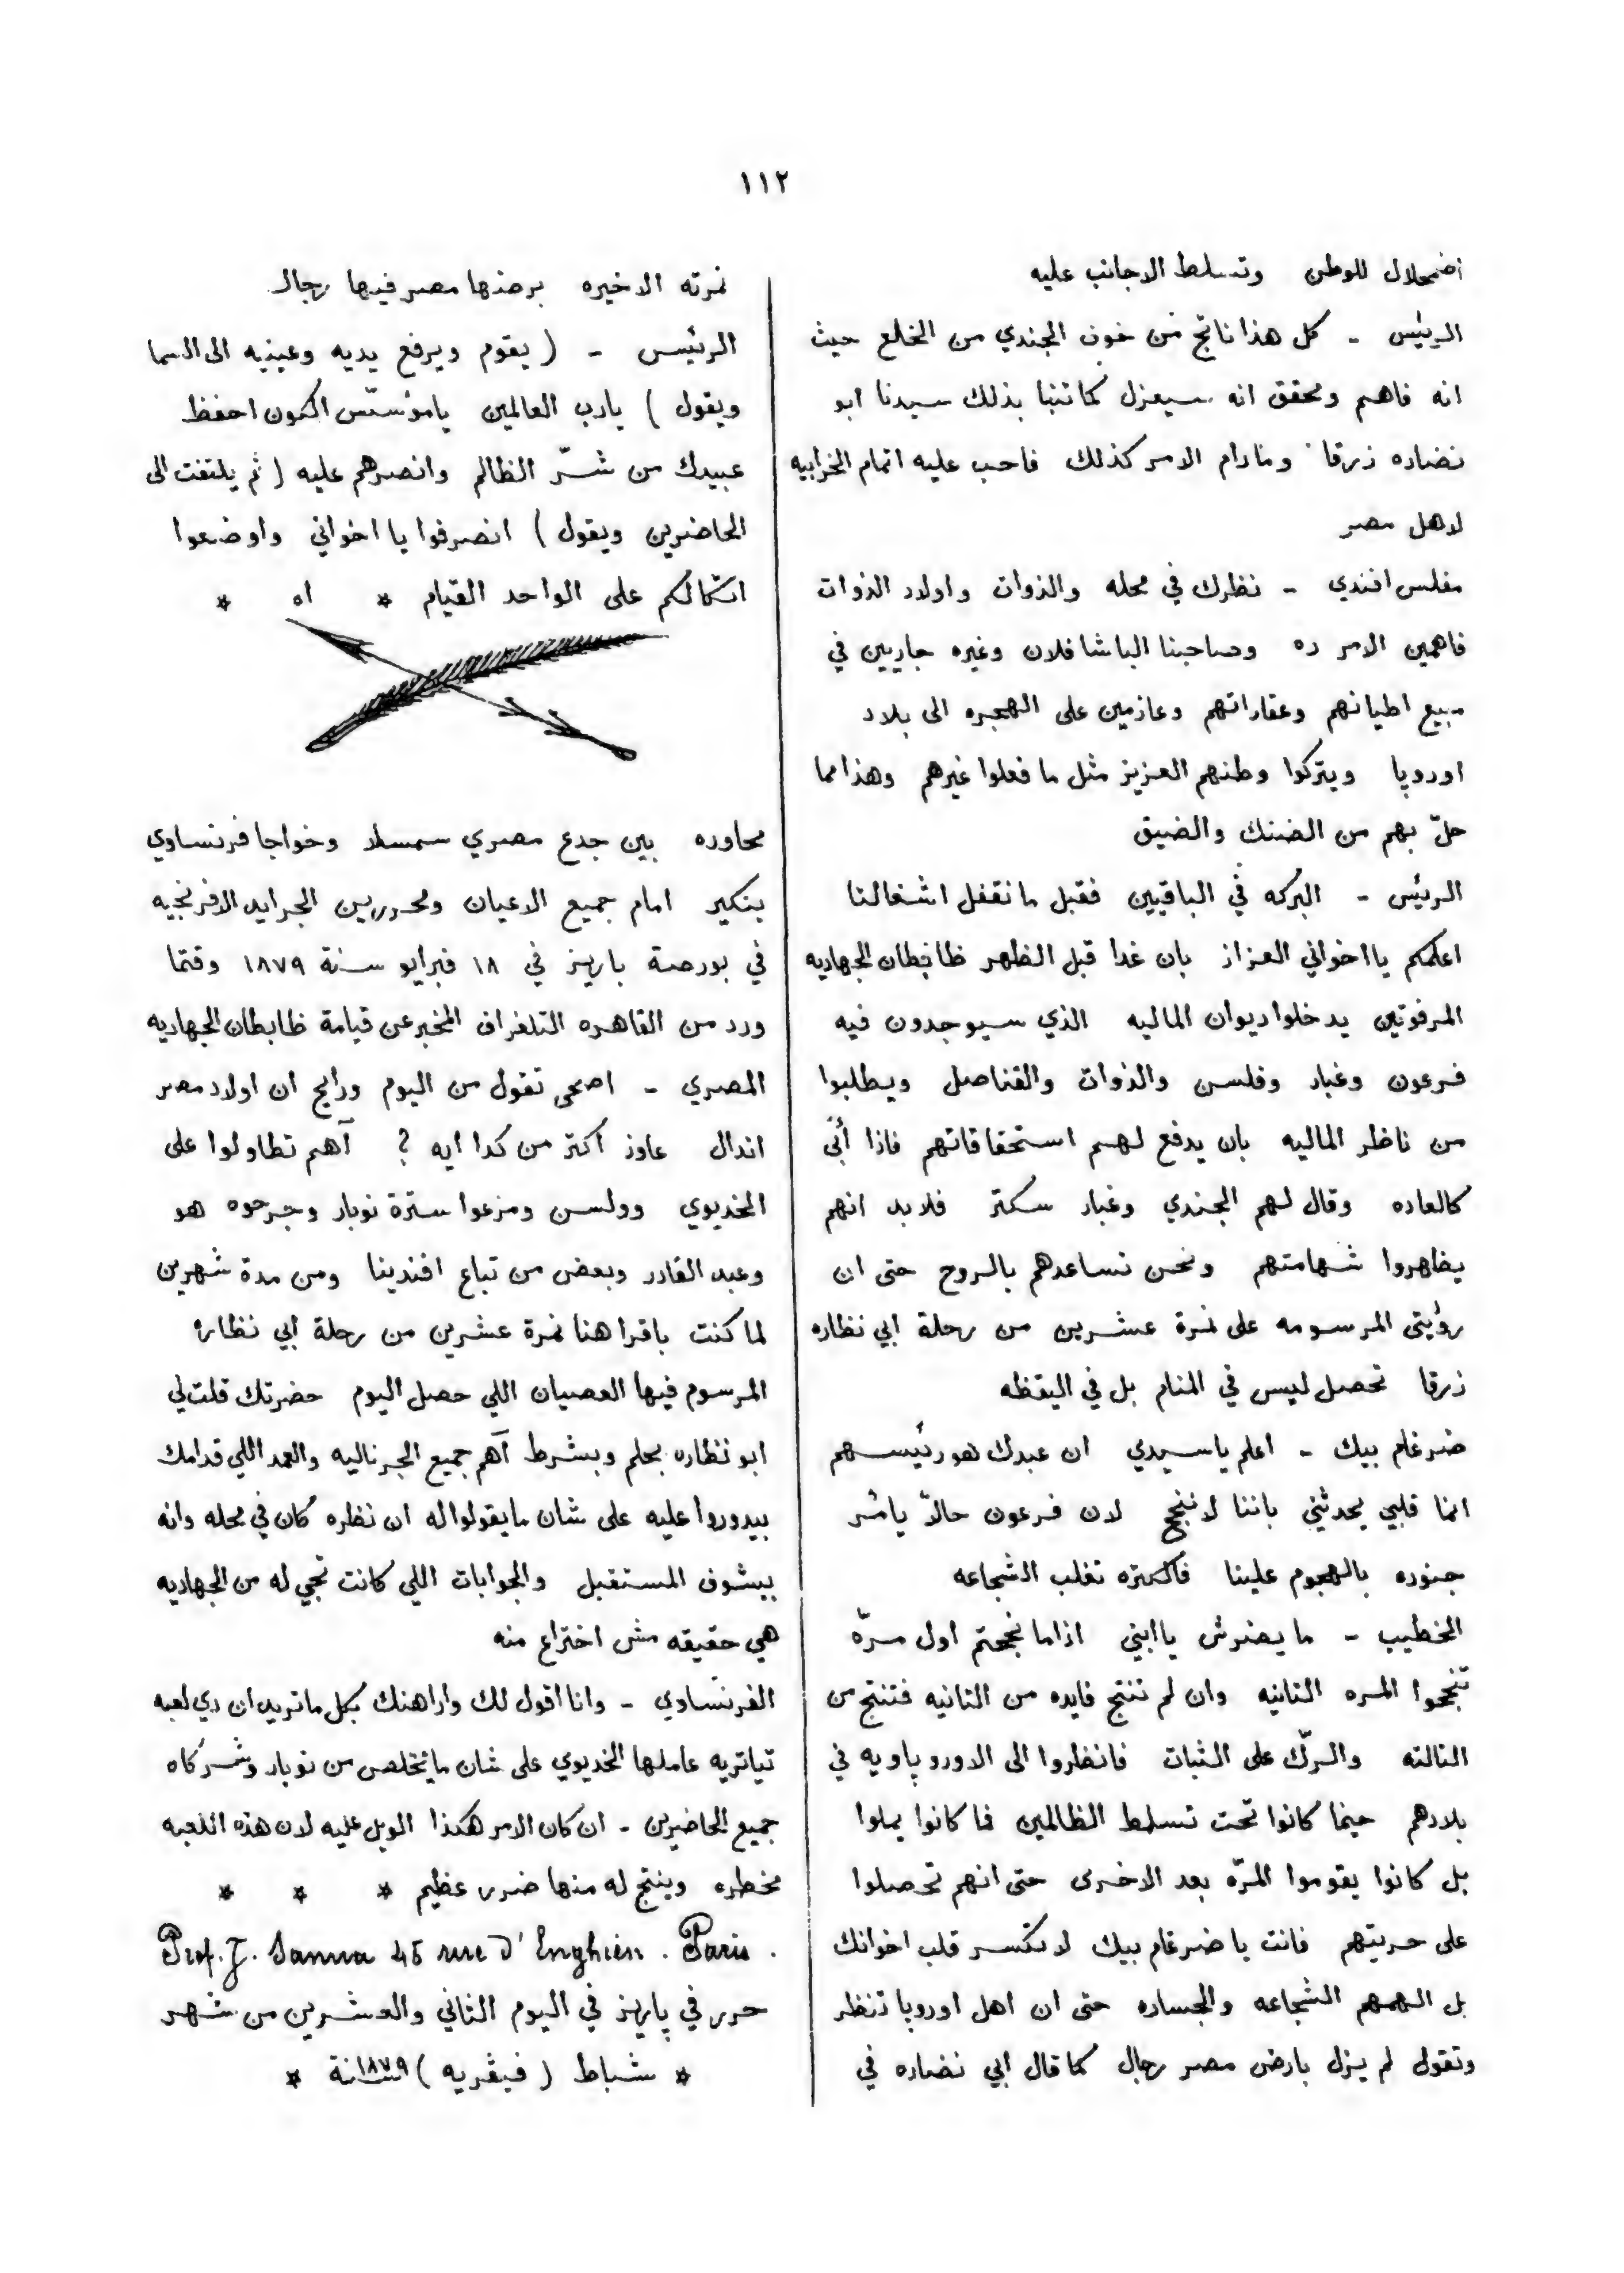 ١١٢
اضمحلال للوطن وتسلط الاجانب عليه
الريئس - كل هذا ناتج من خوف الجندي من الخلع حيث
انه فاهم ومحقق انه سيعزل كما تنبا بذلك سيدنا ابو
نضاره زرقا ومادام الامر كذلك فاحب عليه اتمام الخرابيه
لاهل مصر
مفلس افندي - نظرك في محله والذوات واولاد الذوات
فاهمين الامر ده وصاحبنا الباشا فلان وغيره جاريين في
مبيع اطيانهم وعقاراتهم وعازمين على الهجره الى بلاد
اوروپا ويتركوا وطنهم العزيز مثل ما فعلوا غيرهم وهذا مما
حلّ بهم من الضنك والضيق
الريئس - البركه في الباقيين فقبل ما نقفل اشغالنا
اعلمكم يا اخواني العزاز بان غدا قبل الظهر ظابطان الجهاديه
المرفوتين يدخلوا ديوان الماليه الذي سيوجدون فيه
فرعون وغبار وفلسن والذوات والقناصل ويطلبوا
من ناظر الماليه بان يدفع لهم استحقاقاتهم فاذا أبَى
كالعاده وقال لهم الجندي وغبار سكتر فلابد انهم
يظاهروا شهامتهم ونحن نساعدهم بالروح حتى ان
رؤيتى المرسومه على نمرة عشرين من رحلة ابي نظاره
زرقا تحصل ليس في المنام بل في اليقظه
ضرغام بيك - اعلم يا سيدي ان عبدك هو رئيسهم
انما قلبي يحدثني باننا لا ننجح لان فرعون حالاً يأمر
جنوده بالهجوم علينا فالكتره تغلب الشجاعه
الخطيب - ما يضرش يا ابني اذا ما نجحتم اول مرّه
تنجحوا المره التانيه وان لم تنتج فايده من التانيه فتنتج من
التالته والركّ على الثبات فانظروا الى الاوروپاويه في
بلادهم حينما كانوا تحت تسلط الظالمين فما كانوا يملوا
بل كانوا يقوموا المرّه بعد الاخرى حتى انهم تحصلوا
على حريتهم فانت يا ضرغام بيك لا تكسر قلب اخوانك
بل الهمهم الشجاعه والجساره حتى ان اهل اوروپا تنظر
وتقول لم يزل بارض مصر رجال كما قال ابي نضاره في
نمرته الاخيره برضها مصر فيها رجال
الرئيس - ( يقوم ويرفع يديه وعينيه الى السما
ويقول ) يارب العالمين يا مؤسّس الكون احفظ
عبيدك من شرّ الظالم وانصرهم عليه ( ثم يلتفت الى
الحاضرين ويقول ) انصرفوا يا اخواني واوضعوا
اتكالكم على الواحد القيام * اه *
محاوره بين جدع مصري سمسار وخواجا فرنساوي
بنكير امام جميع الاعيان ومحررين الجرايد الافرنجيه
في بورصة باريز في ١٨ فبرايو سنة ١٨٧٩ وقتما
ورد من القاهره التلغراف المخبر عن قيامة ظابطان الجهاديه
المصري - اصحى تقول من اليوم ورايح ان اولاد مصر
اندال عاوز اكتر من كدا ايه ؟ آهم تطاولوا على
الخديوي وولسن ومزعوا سترة نوبار وجرحوه هو
وعبد القادر وبعض من تباع افندينا ومن مدة شهرين
لما كنت باقرا هنا نمرة عشرين من رحلة ابي نظاره
المرسوم فيها العصيان اللي حصل اليوم حضرتك قلت لي
ابو نظاره بحلم وبشرط آهم جميع الجرناليه والعمد اللي قدامك
بيدوروا عليه على شان ما يقولوا له ان نظره كان في محله وانه
بيشوف المستقبل والجوابات اللي كانت تجي له من الجهاديه
هي حقيقه مش اختراع منه
الفرنساوي - وانا اقول لك واراهنك بكل ما تريد ان دي لعبه
تياتريه عاملها الخديوي على شان ما يتخلص من نوبار وشركاه
جميع الحاضرين - ان كان الامر هكذا الويل عليه لان هذه اللعبه
مخطره وينتج له منها ضرر عظيم * * *
Prof. J. Sanua 45 rue d'Enghien . Paris .
حرر في پاريز في اليوم الثاني والعشرين من شهر
* شباط ( فيڤريه ) ١٨٧٩ سنة *